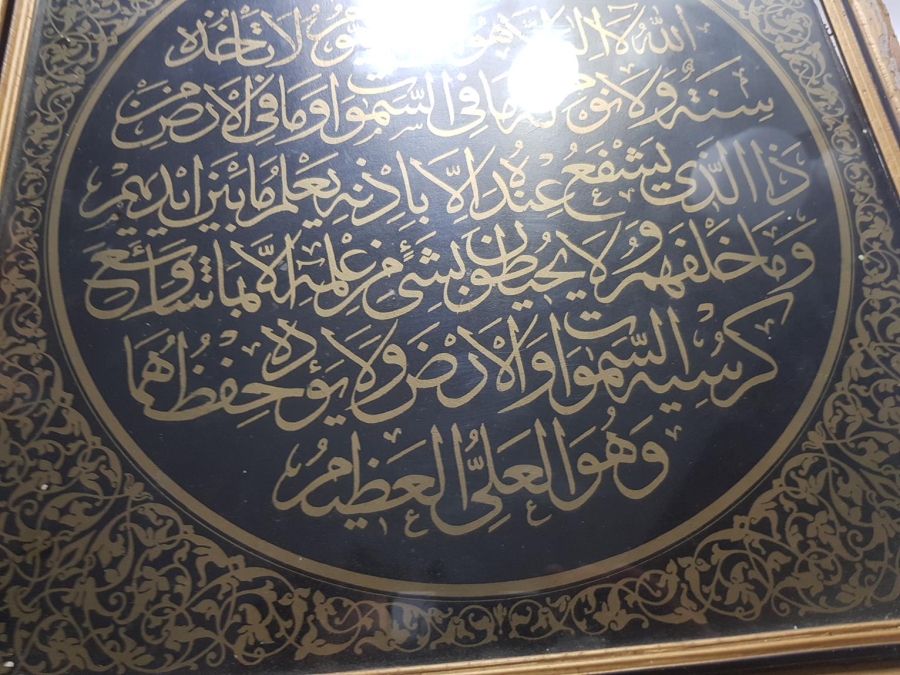 اللّٰهُ لَا اِلٰهَ لَا تَأْخُذُهُ
سِنَةٌ وَلَا نَوْمٌ لَهُ مَا فِي السَّمٰوَاتِ وَمَا فِي الْاَرْضِ مَنْ
ذَا الَّذِي يَشْفَعُ عِنْدَهُ اِلَّا بِاِذْنِهِ يَعْلَمُ مَا بَيْنَ اَيْدِيهِمْ
وَمَا خَلْفَهُمْ وَلَا يُحِيطُونَ بِشَيْءٍ مِنْ عِلْمِهِ اِلَّا بِمَا شَاءَ وَسِعَ
كُرْسِيُّهُ السَّمٰوَاتِ وَالْاَرْضَ وَلَا يَؤُدُهُ حِفْظُهُمَا
وَهُوَ الْعَلِيُّ الْعَظِيمُ